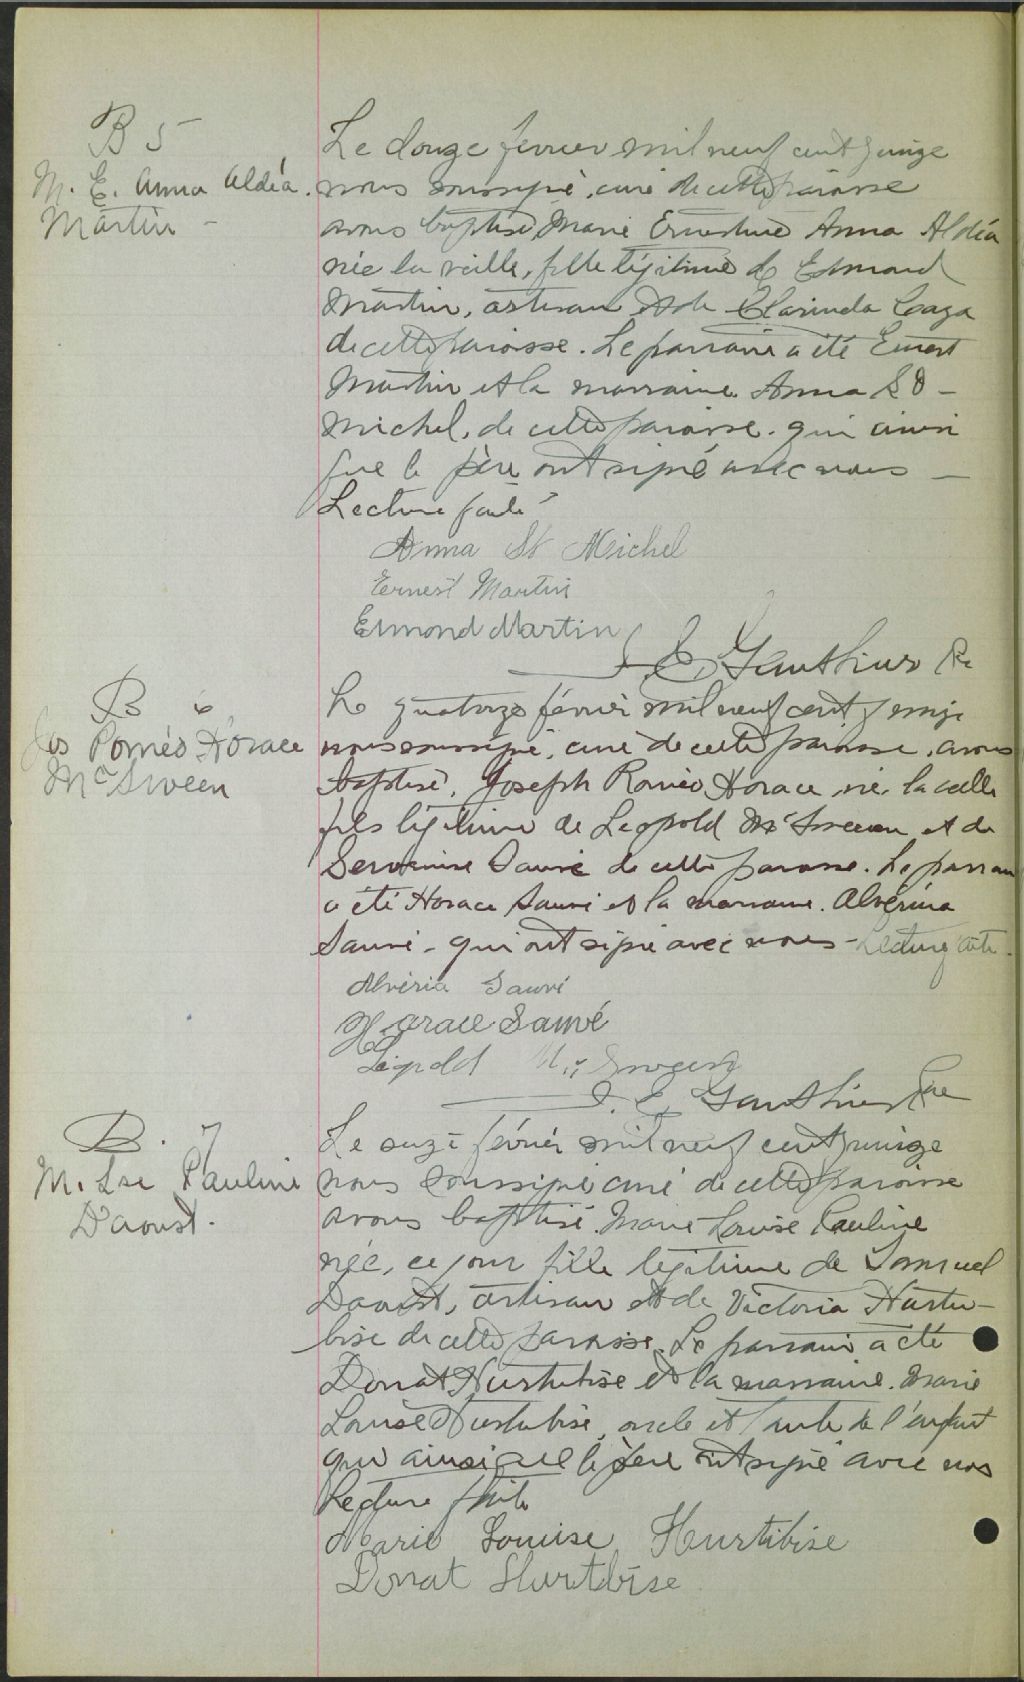 B 5
M. E. Anna Aldéa.
Martin -
Le douze février mil neuf cent quinze
nous soussigné, curé de cette paroisse
avons baptisé Marie Ernestine Anna Aldéa
née la veille, fille légitime de Edmond
Martin, artisan et de Clarinda
de cette paroisse. Le parrain a été Ernest
Martin et la marraine Anna St -
Michel, de cette paroisse. qui ainsi
que le père ont signé avec nous -
Lecture faite
Anna St Michel
Ernest Martin
Edmond Martin
J. E. Gauthier Ptre
B 6
Jos Roméo Horace
Mc Sween
Le quatorze février mil neuf cent quinze
nous soussigné, curé de cette paroisse, avons
baptisé, Joseph Roméo Horace, né la veille
fils légitime de Léopold Mc Sween et de
Sauvé de cette paroisse. Le parrain
a été Horace Sauvé et la marraine. Alvérina
Sauvé - qui ont signé avec nous - Lecture faite.
Alvéria Sauvé
Horace Sauvé
Léopold Mc Sween
J. E. Gauthier Ptre
B. 7
M. Lse Pauline
D'aoust.
Le seize février mil neuf cent quinze
nous soussigné curé de cette paroisse
avons baptisé Marie Louise Pauline
née, ce jour fille légitime de Samuel
Daoust, artisan et de Victoria Hurtu-
bise de cette paroisse. Le parrain a été
Donat Hurtubise et la marraine. Marie
Louise Hurtubise, oncle et tante de l'enfant
qui ainsi que le père ont signé avec nos
Lecture faite
Marie Louise Hurtibise
Donat Hurtibise